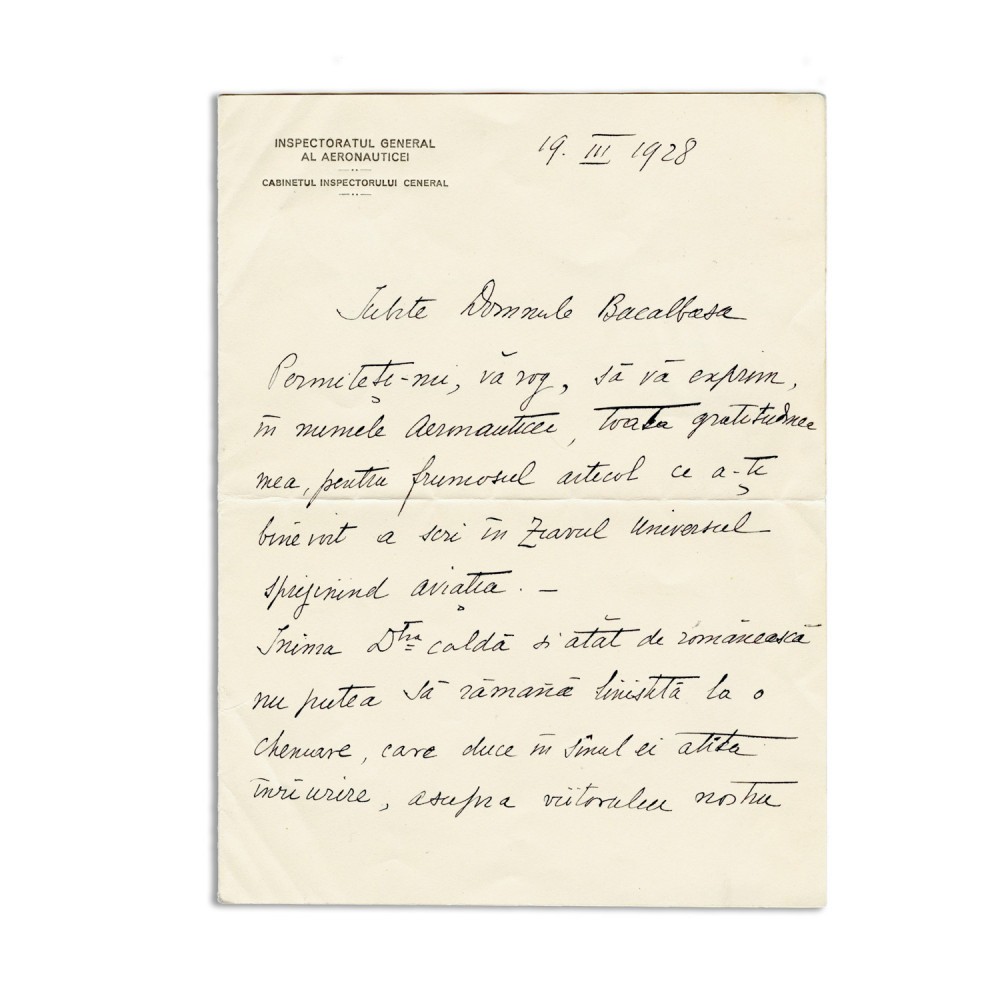 INSPECTORATUL GENERAL
AL AERONAUTICEI
CABINETUL INSPECTORULUI GENERAL
19. III 1928
Iubite Domnule Bacalbasa
Permiteți-mi, vă rog, să vă exprim,
în numele Aeronauticei, toata gratitudinea
mea, pentru frumosul articol ce a-ți
bine voit a scri în Ziarul Universul
sprijinind aviația. —
Inima D^tra caldă si atât de românească
nu putea să rămană liniștită la o
chemare, care duce în sînul ei atita
înrîurire, asupra viitorului nostru